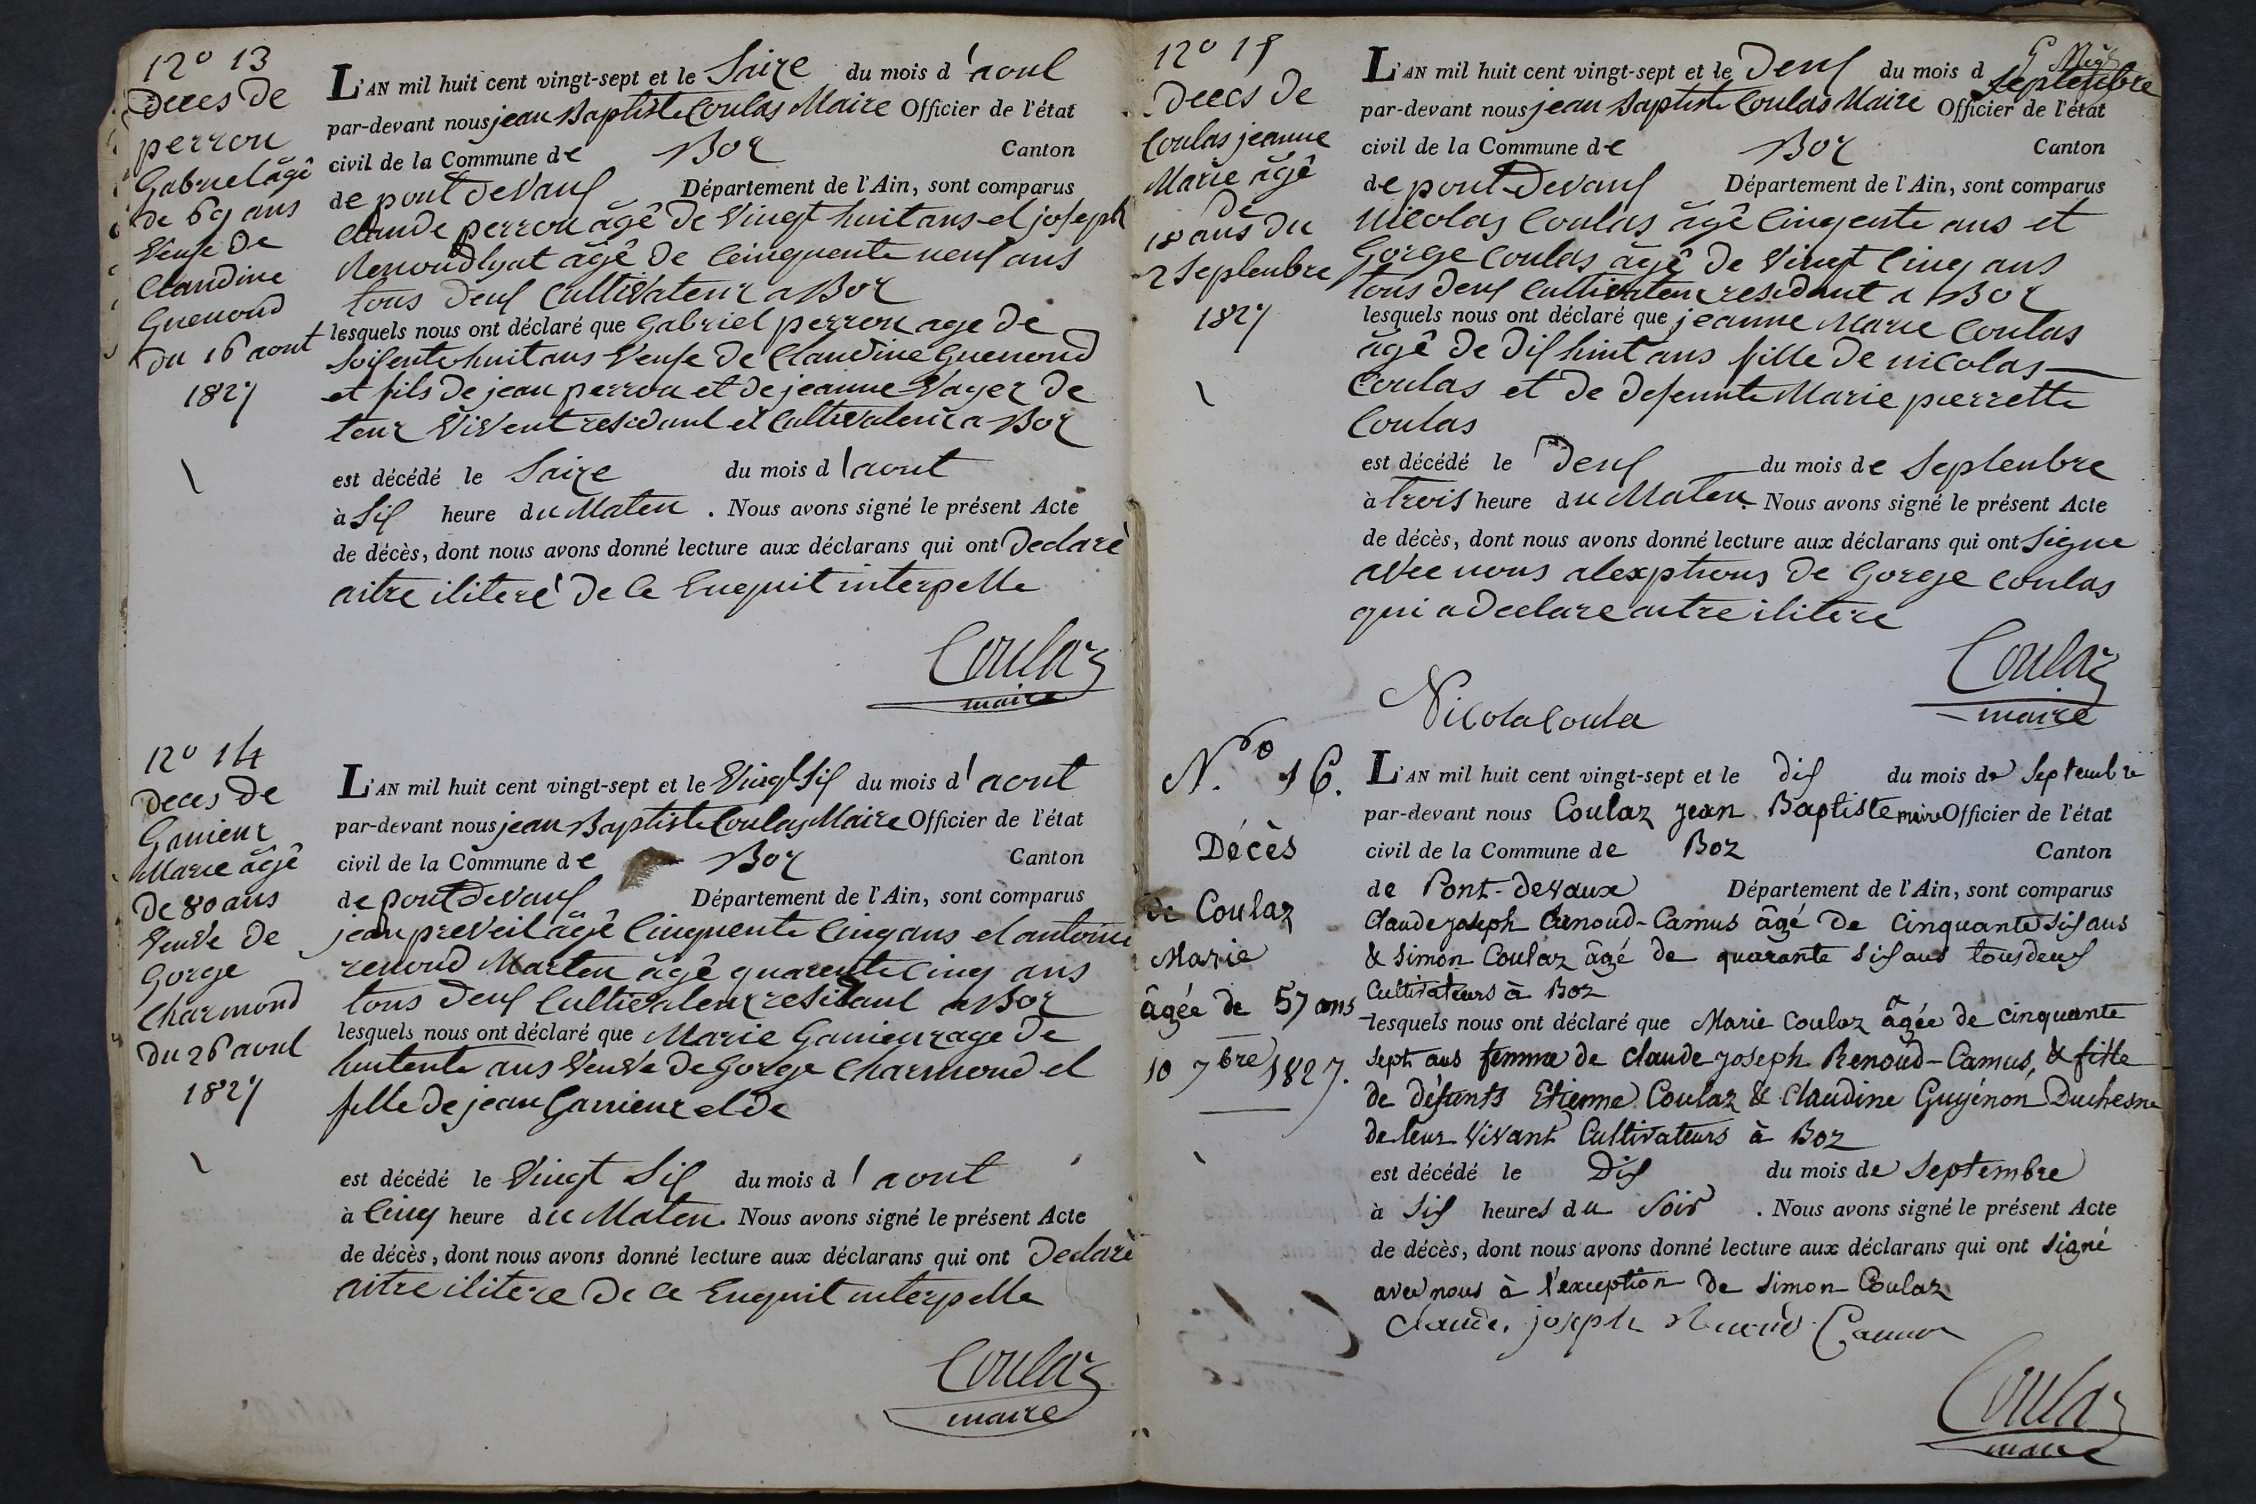 N° 13
Deces De
perron
Gabriel âgê
de 69 ans
Veuf De
Claudine
Guenoud
du 16 aout
1827
L'AN mil huit cent vingt-sept et le Saize du mois d'aout
par-devant nous jean Baptiste Coulas Maire Officier de l'état
civil de la Commune de Boz Canton
de pont deVaux Département de l'Ain, sont comparus
claude perron âgê de Vingt huit ans et joseph
âgê de Cinquente neuf ans
tous deux CultiVateur a Boz
lesquels nous ont déclaré que Gabriel perron age de
soisente huit ans Veufe de Claudine Guenoud
et fils de jean perron et de jeanne Vayer de
leur ViVent residant et CultiVateur a Boz
est décédé le Saize du mois d'aout
à Six heure du Maten. Nous avons signé le présent Acte
de décès, dont nous avons donné lecture aux déclarans qui ont Declaré
aitre iliteré de ce Enquit interpelle
Coulaz
maire
N° 14
Deces De
Ganieur
Marie âgê
De 80 ans
VeuVe de
Gorge
Charmond
Du 26 aout
1827
L'AN mil huit cent vingt-sept et le Vingt Six du mois d'aout
par-devant nous jean Baptiste Coulas Maire Officier de l'état
civil de la Commune de Boz Canton
de pont deVaux Département de l'Ain, sont comparus
jean preVeil âgê Cinquente Cinq ans et antoine
renoud Marten âgê quarente Cinq ans
tous deux CultiVateur residant a Boz
lesquels nous ont déclaré que Marie Ganieur age de
huitente ans VeuVe de Gorge Charmond et
fille de jean Ganieur et de
est décédé le Vingt Six du mois d'aout
à Cinq heure du Maten. Nous avons signé le présent Acte
de décès, dont nous avons donné lecture aux déclarans qui ont Declaré
aitre ilitere De ce Enquit interpelle
Coulaz
maire
N° 15
Deces De
Coulas jeanne
Marie âgê
de
18 ans du
2 Septenbre
1827
L'AN mil huit cent vingt-sept et le Deux du mois d Septenbre
par-devant nous jean Baptiste Coulas Maire Officier de l'état
civil de la Commune de Boz Canton
de pont DeVaux Département de l'Ain, sont comparus
Nicolas Coulas âgê Cinqente ans et
Gorge Coulas âgê de Vingt Cinq ans
tous deux CultiVateur residant a Boz
lesquels nous ont déclaré que jeanne Marie Coulas
âgê de dix huit ans fille de nicolas
Coulas et de defeunte Marie pierrette
Coulas
est décédé le Deux du mois de Septenbre
à trois heure du Maten. Nous avons signé le présent Acte
de décès, dont nous avons donné lecture aux déclarans qui ont Signe
aVec nous alexptions de Gorge Coulas
qui a declare aitre ilitere
Coulaz
maire
Nicola Coula
N.° 16.
Décès
de Coulaz
Marie
âgée de 57 ans
10 7bre 1827.
L'AN mil huit cent vingt-sept et le dix du mois de Septembre
par-devant nous Coulaz jean Baptiste maire Officier de l'état
civil de la Commune de Boz Canton
de Pont-devaux Département de l'Ain, sont comparus
Claude joseph Renoud-Camus âgé de Cinquante six ans
& Simon Coulaz âgé de quarante six ans tous deux
Cultivateurs à Boz
lesquels nous ont déclaré que Marie Coulaz âgée de cinquante
sept ans femme de claude joseph Renoud-Camus, & fille
de défunts Etienne Coulaz & Claudine Guyénon Duchesne
de leur Vivant Cultivateurs à Boz
est décédé le Dix du mois de Septembre
à Six heures du Soir. Nous avons signé le présent Acte
de décès, dont nous avons donné lecture aux déclarans qui ont signé
avec nous à l'exception de simon Coulaz
Claude, joseph Camus
Coulaz
maire